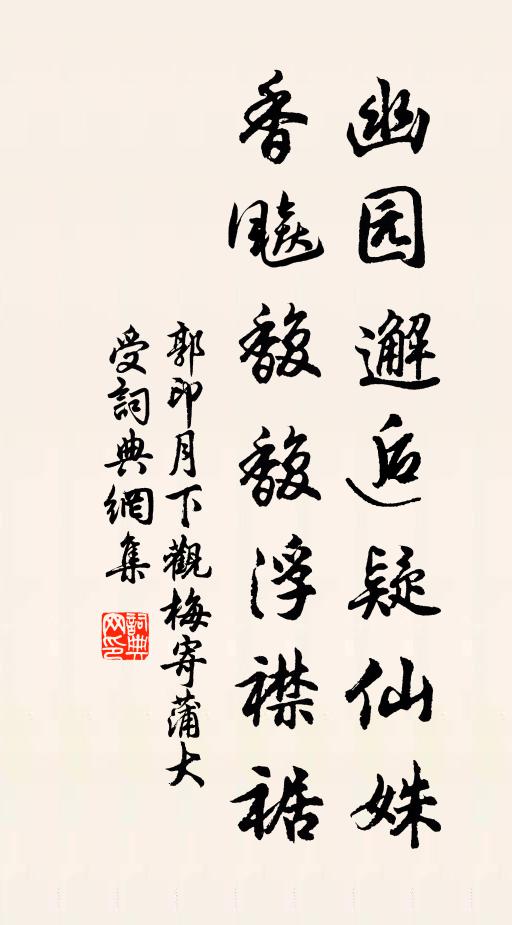 幽园邂逅疑仙姝
香飚馥馥浮襟裾
郭印月下觀梅寄蒲大
受詞典網集
詞典
网印